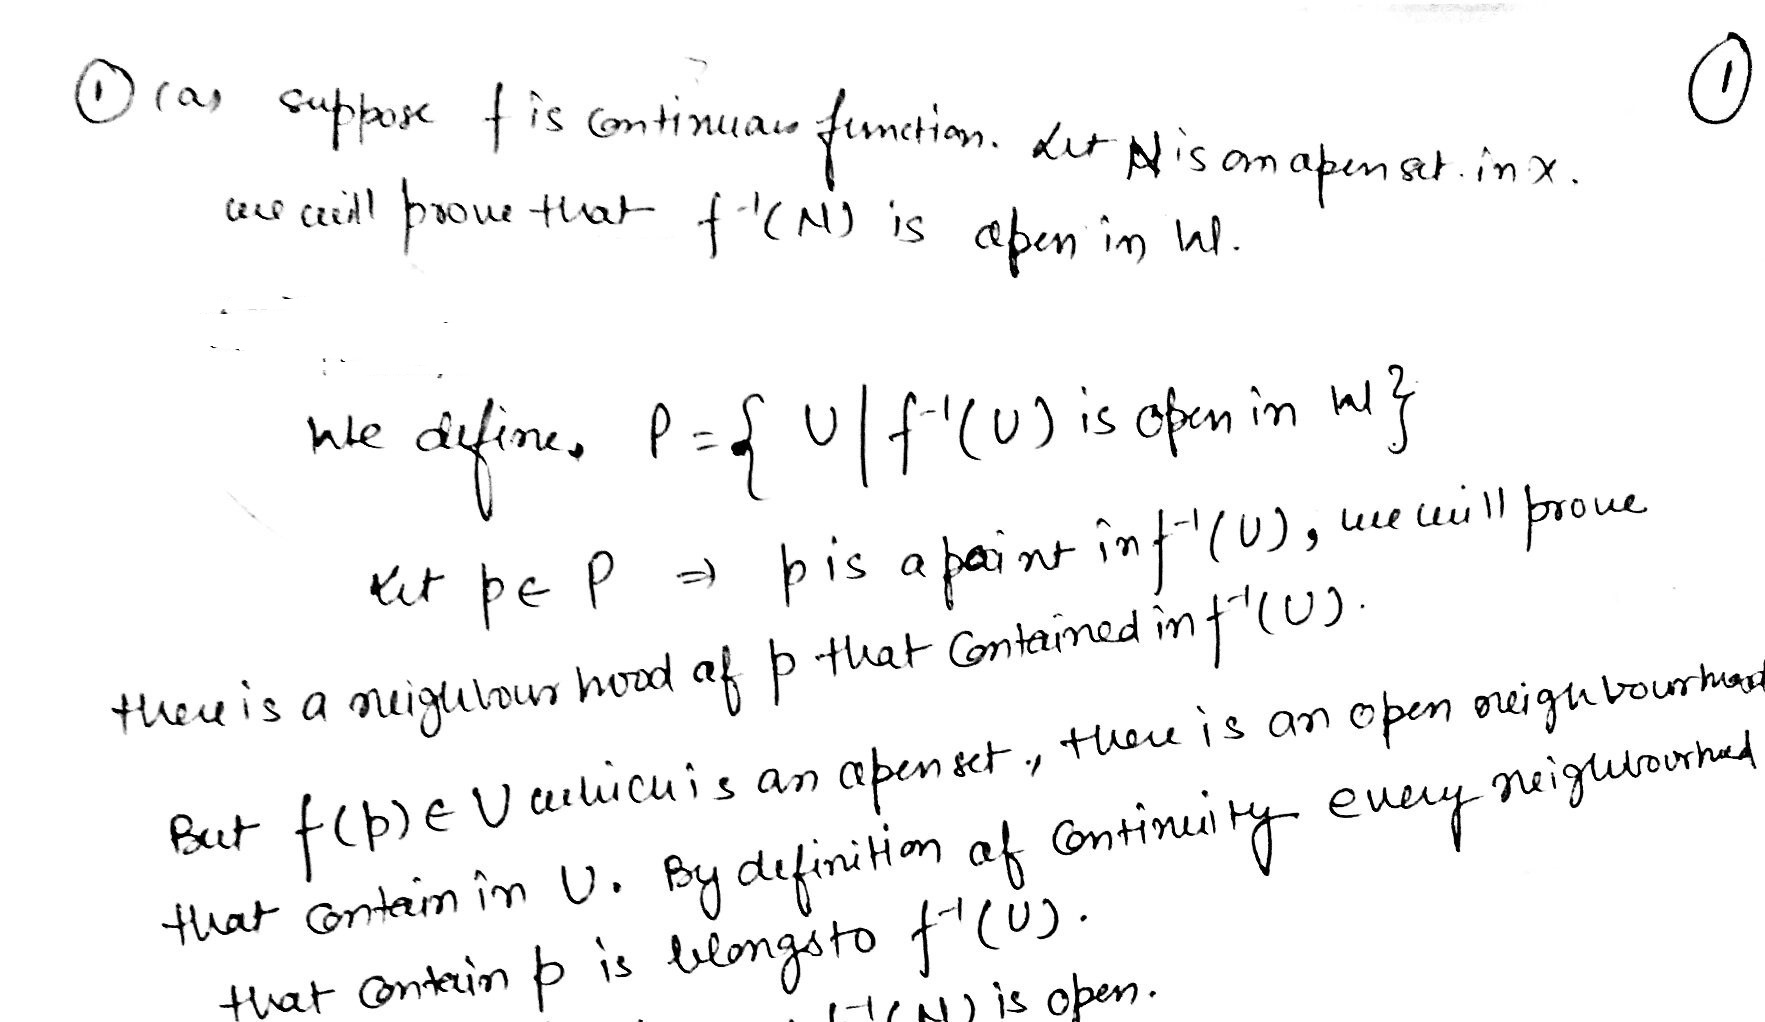 ① (a) suppose f is continuous function. Let N is an open set in X. ①
we will prove that f⁻¹(N) is open in W.
We define, P = { U | f⁻¹(U) is open in W }
Let p ∈ P ⇒ p is a point in f⁻¹(U), we will prove
there is a neighbourhood of p that contained in f⁻¹(U).
But f(p) ∈ U which is an open set, there is an open neighbourhood
that contain in U. By definition of continuity every neighbourhood
that contain p is belongs to f⁻¹(U).
f⁻¹(N) is open.